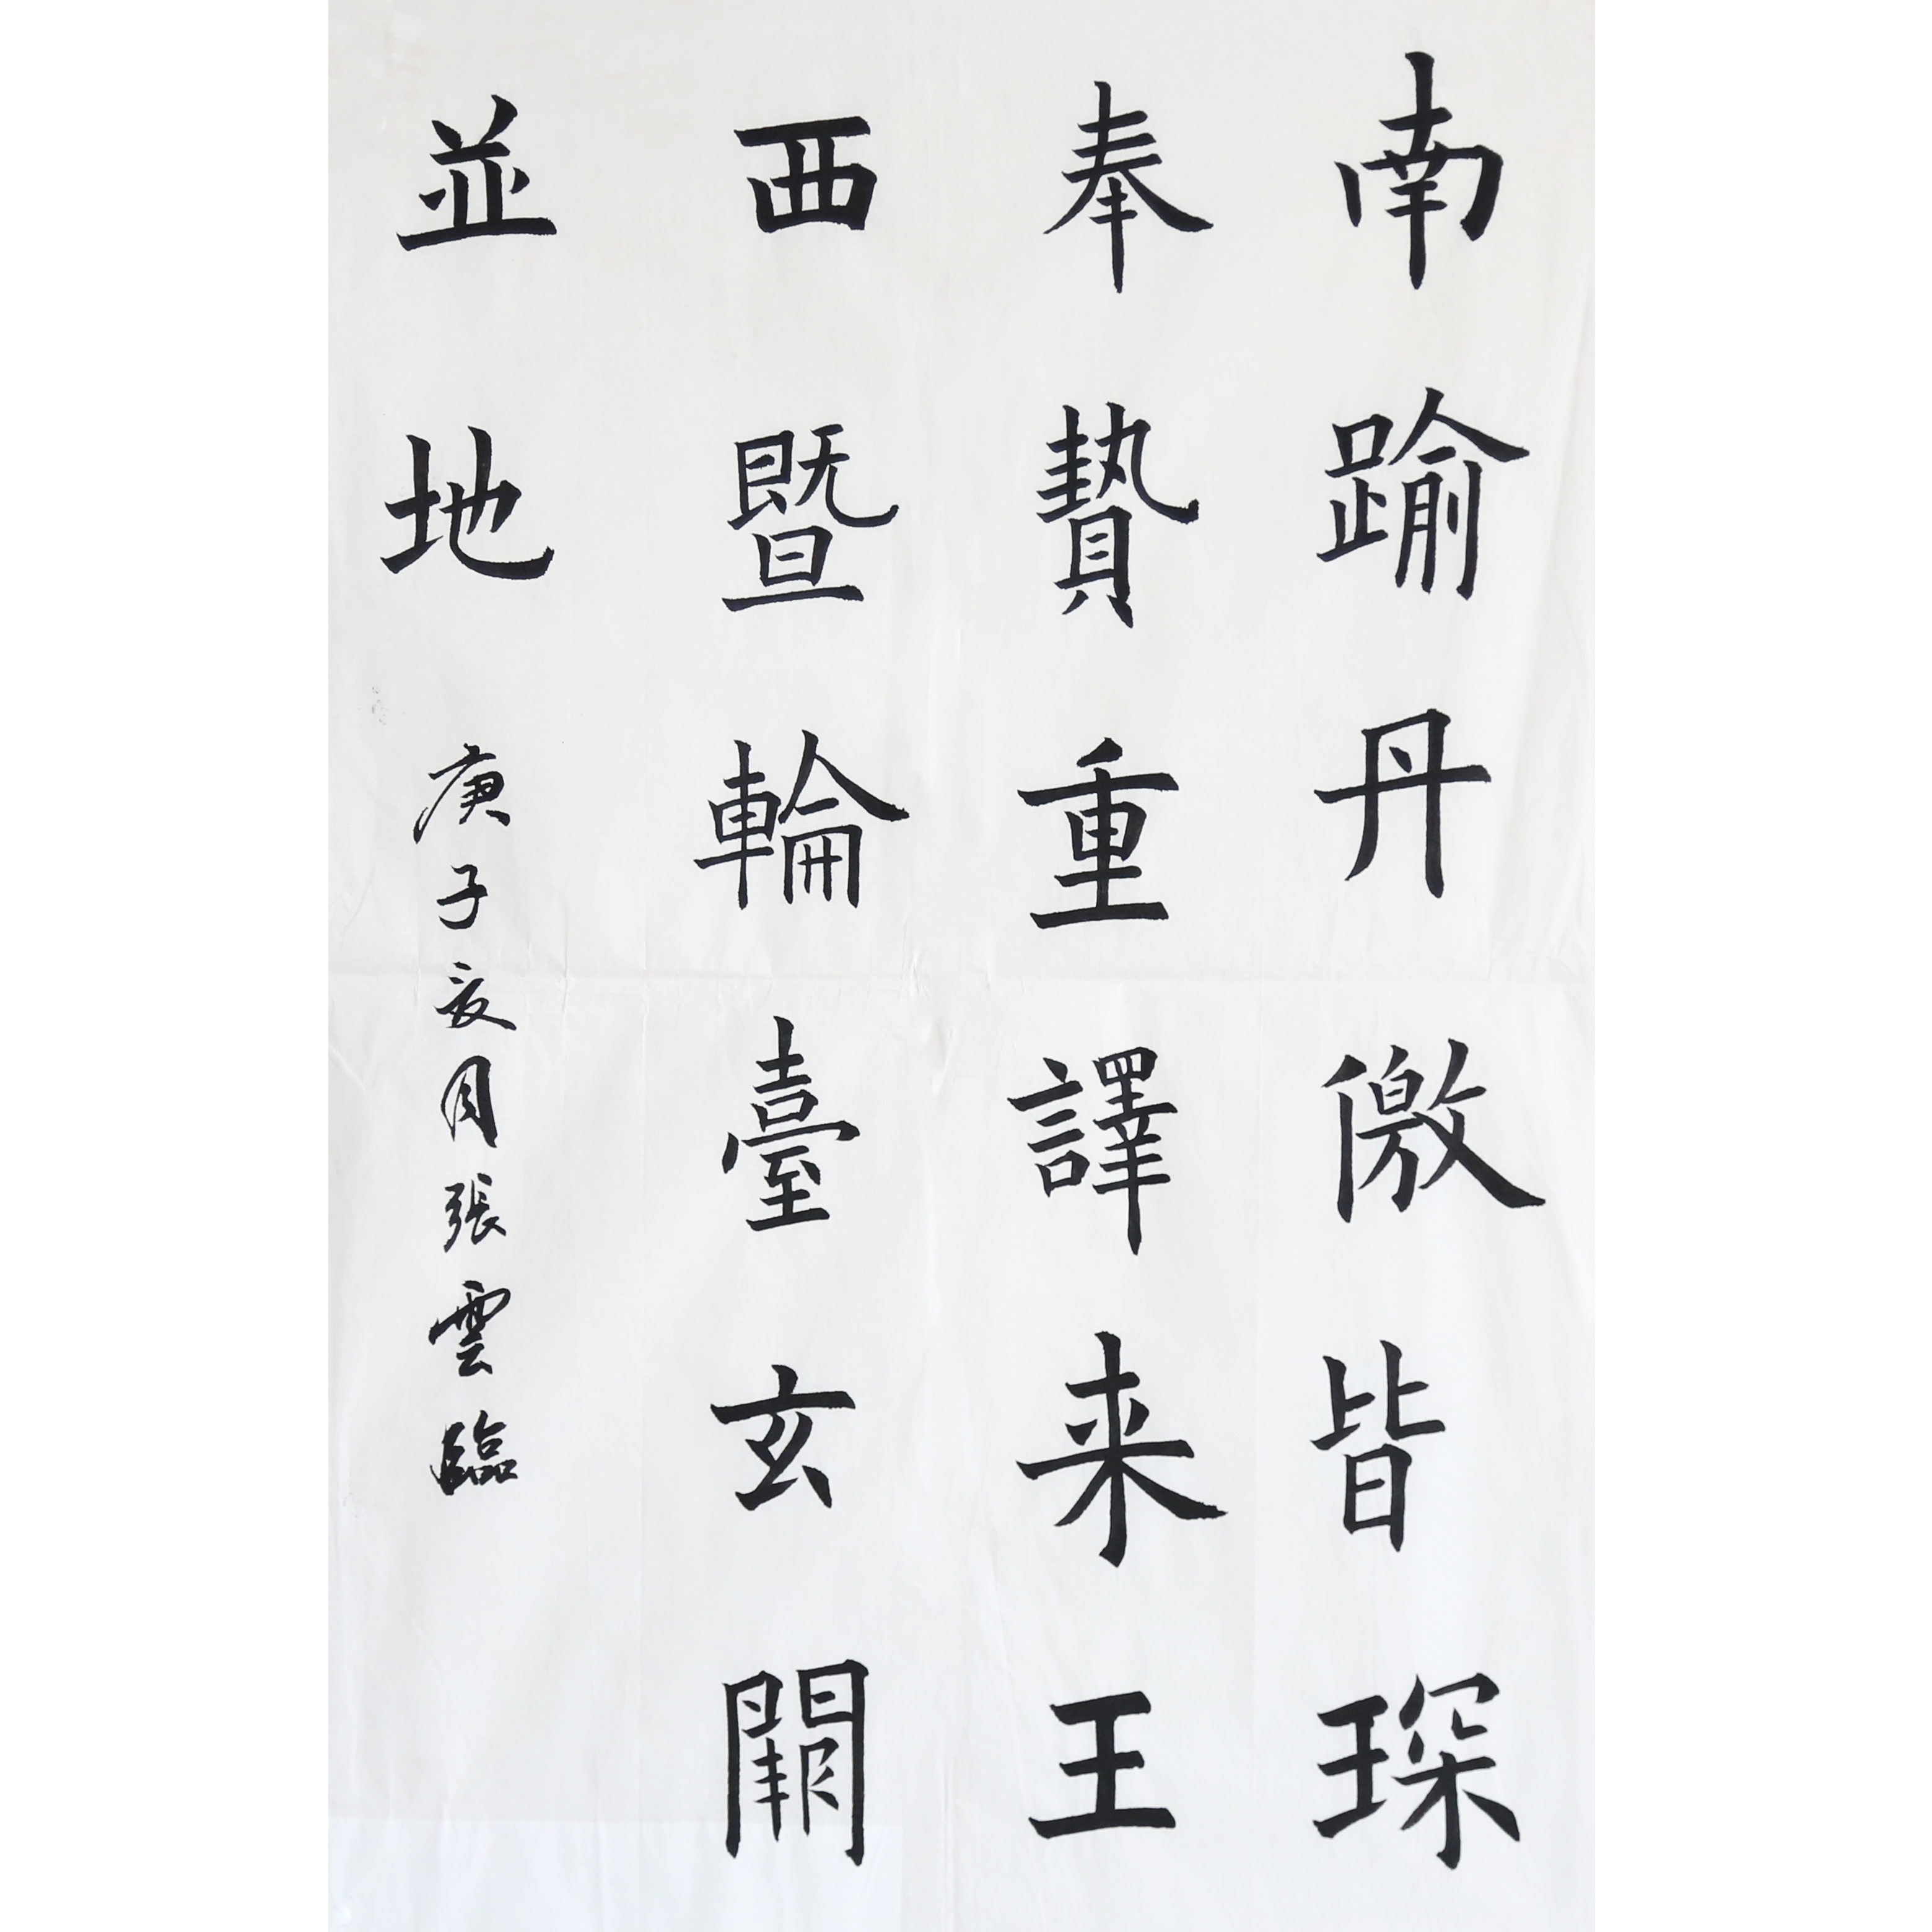 南踰丹徼皆琛
奉贄重譯来王
西暨輪臺玄闕
並地
庚子亥月張雲臨